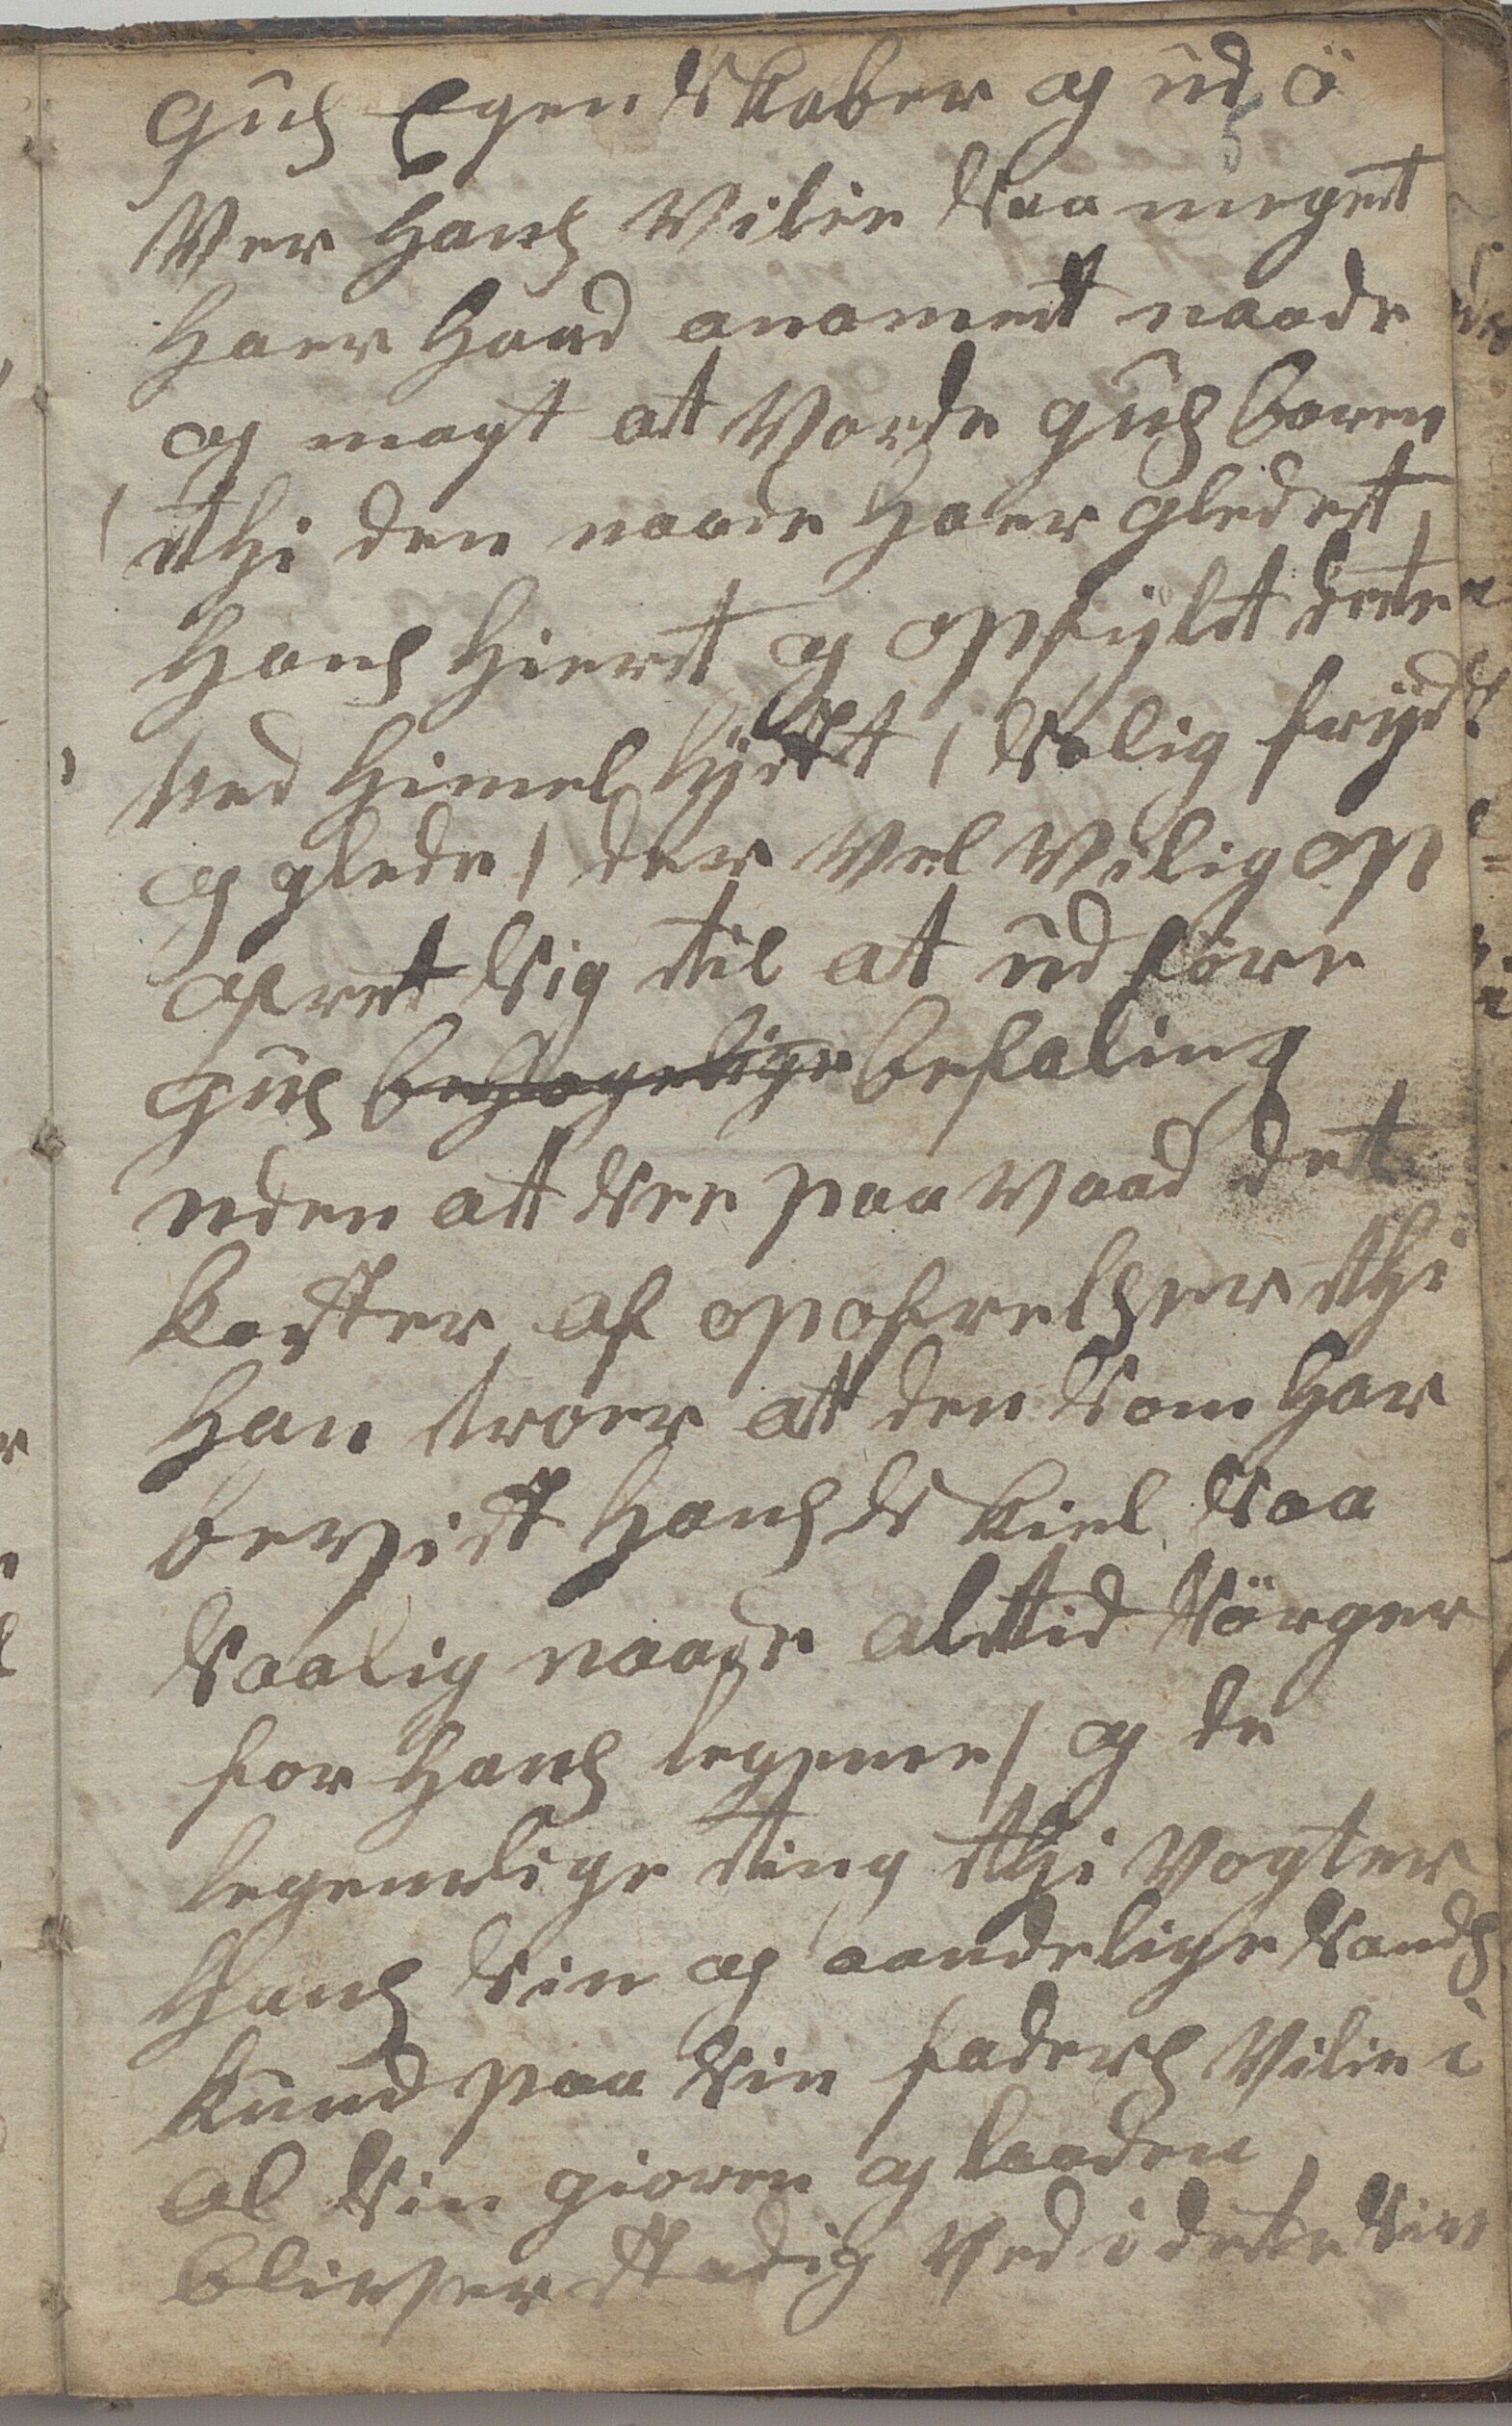 Guds Egen Skaber og ud ö
Ver hans Vilie Saa meget
haer haad anamet naade
og magt at Vorde guds baren
thi den naade haer gledet,
hans Hiert og opfylt dete
Med Himel / Salig fryd
og glede / der Vel Velig op
ofret Sig til at ud före
guds behagelige befaling
uden at See paa Vaad det
kaster af opofrelser thi
Han troer at den Som Har
bevist hans Skiel Saa
Saalig naade altid Sörger
for hans legeme / og de
legemlige ting thi Vogter
Hans Sin og aandelige Sands
kuns paa Sin faders Vilie i
al Sin gioren og laaden
bliver stadig Ved i dete Sin